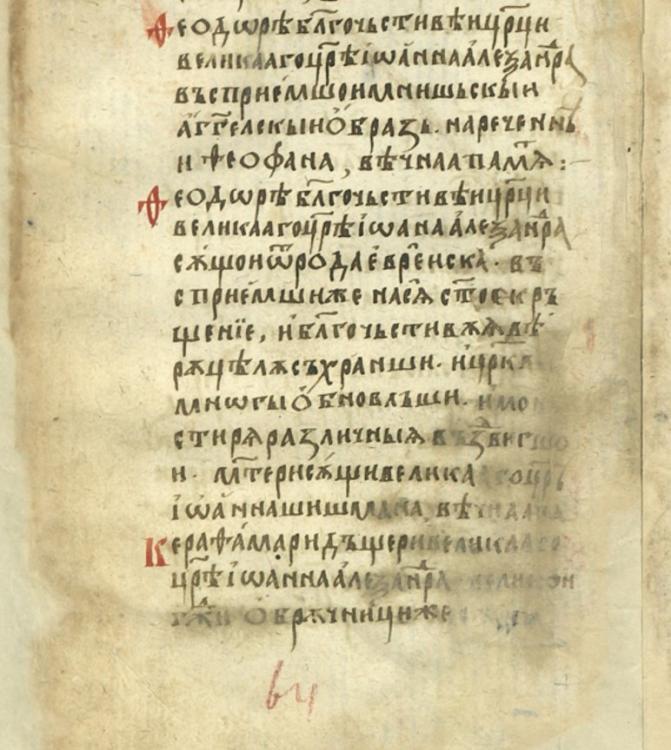 Ѳеодѡрѣ бл҃гочьстивѣи цр҃ци
великааго цр҃ѣ іѡанна алеѯанⷣра
въспріемшои мнишьскыи
аг҃гелскыи ѡбразь. нареченнѣ
и ѳеофана, вѣчнаа памѧ҃:
Ѳеодѡрѣ бл҃гочьстивѣи цр҃ци
великааго цр҃ѣ іѡана алеѯанⷣра
сѫщои ѿ рода еврⷺеиска. въ
спріемши же на сѧ ст҃ое кръ
щеніе, и бл҃гочьстивѫѧ вѣ
рѫ цѣлѫ съхранши. и цр҃к
мнѡгы ѡбновльши. и мо
стирѧ различныѧ въздвигшо
и. мт҃ери сѫщи великааго цр҃ѣ
іѡанна шишмана, вѣчнаа
Кераѳамари дъщери великааго
цр҃ѣ іѡанна алеѯанⷣра великои
обрѫчници же
64